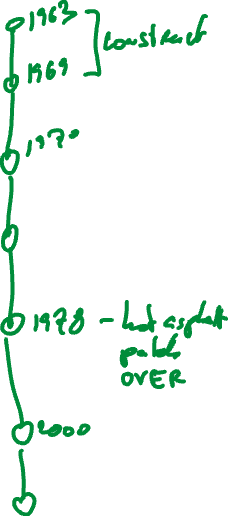 1963
1969
construct
1970
1978 - hot asphalt
patch
OVER
2000